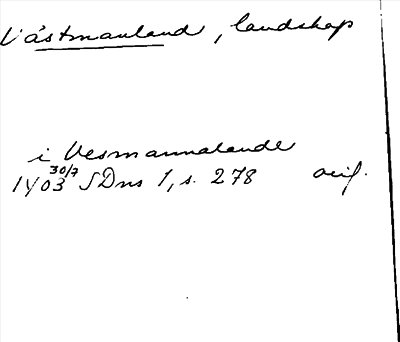 Västmanland, landskap
i Vesmannalande
1403 30/7 SDns 1, s. 278 orig.